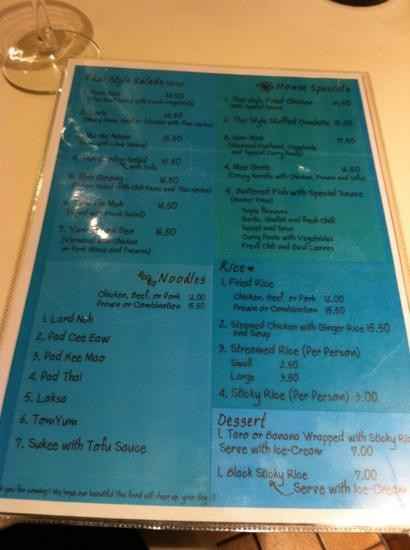 Thai Style Salads (Spicy)
1. Yum Nua 16.50
(Thai Beef Salad with Fresh Vegetable)
2. Larb 16.50
with Thai Herbs)
15.50
(Pork with Lime Sauce)
4. Thai Garden Salad 15.50
with Tofu
16.50
Salad with Chili Paste and Thai Herbs)
16.50
(Squid with Fresh Salad)
7. Yum Woon Sen 16.50
(Vermicelli with Chicken
or Pork Mince and Prawns)
House Specials
1. Thai Style Fried Chicken
with Special Sauce
2. Thai Style Stuffed Omelette 15.50
3. Hor Mok
(Steamed Seafood, Vegetable
and Special Curry Paste)
4. Mee Grob
(Crispy Noodle with Chicken, Prawn and Tofu)
5. Battered Fish with Special Sauce
(Market Price)
Triple flavours
Garlic, Shallot and Fresh Chili
Sweet and Sour
Curry Paste with Vegetables
Fresh Chili and Basil Leaves
Noodles
Chicken, Beef, or Pork 12.00
Prawn or Combination 15.50
1. Lard Nah
2. Pad Cee Eaw
3. Pad Kee Mao
4. Pad Thai
5. Laksa
6. Tom Yum
7. Sukee with Tofu Sauce
Rice
1. Fried Rice
Chicken, Beef, or Pork 12.00
Prawn or Combination 15.50
2. Steamed Chicken with Ginger Rice 15.50
and Soup
3. Streamed Rice (Per Person)
Small 2.50
Large 3.50
4. Sticky Rice (Per Person) 3.00
Dessert
1. Taro or Banana Wrapped with Sticky Rice
Serve with Ice-Cream 7.00
1. Black Sticky Rice 7.00
Serve with Ice-Cream
you for coming! We hope our beautiful Thai food will cheer up your day :)